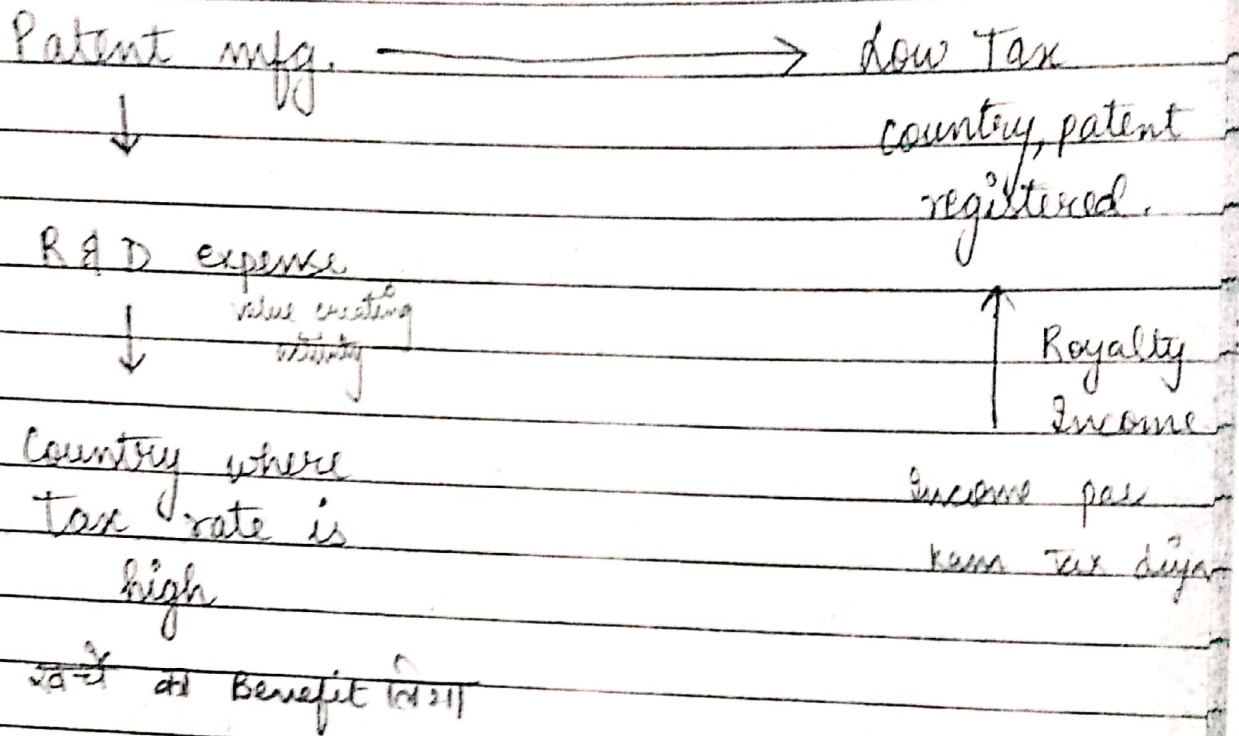 Patent mfg. → Low Tax
country, patent
registered.
↓
R & D expense
value creating
activity
↓
Royalty
Income
Country where
Tax rate is
high
Income par
kam Tax diya
खर्चे का Benefit लिया